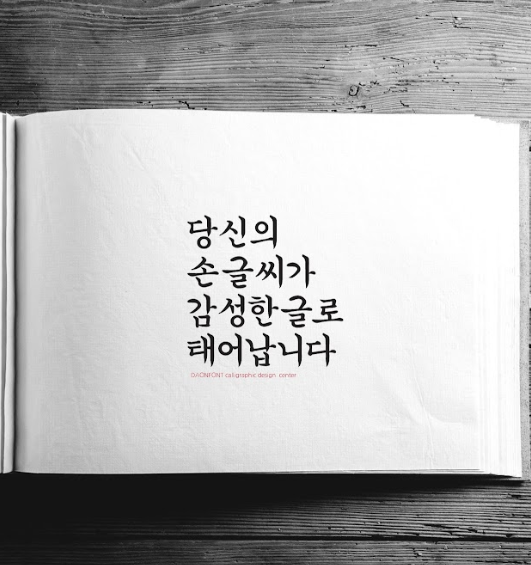 당신의
손글씨가
감성한글로
태어납니다
DAONFONT caligraphic design center